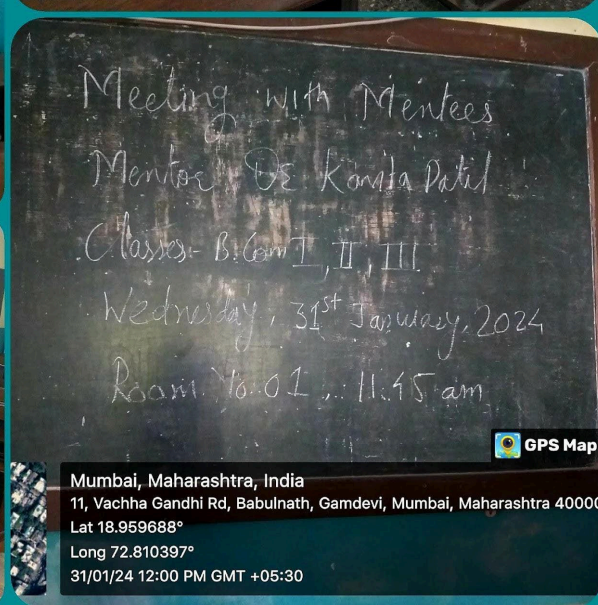 Meeting with Mentees
Mentor Dr Kavita Patil
Classes- B.Com I, II, III
Wednesday, 31st January, 2024
Room No.01, 11.45 am
GPS Map
Mumbai, Maharashtra, India
11, Vachha Gandhi Rd, Babulnath, Gamdevi, Mumbai, Maharashtra 40000
Lat 18.959688°
Long 72.810397°
31/01/24 12:00 PM GMT +05:30